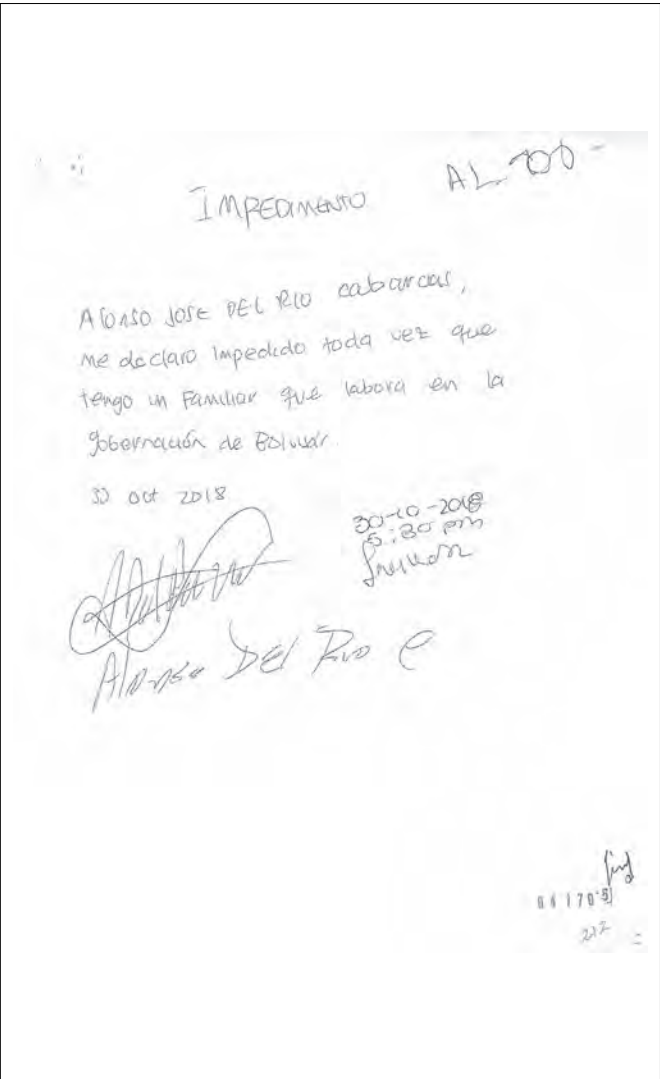 AL. 700 -
IMPEDIMENTO
Alonso JOSE DEL RIO cabarcas,
me declaro impedido toda vez que
tengo un Familiar que labora en la
gobernación de Bolívar.
30 oct 2018
30-10-2018
5:30 pm
Alonso DEL Rio C
212